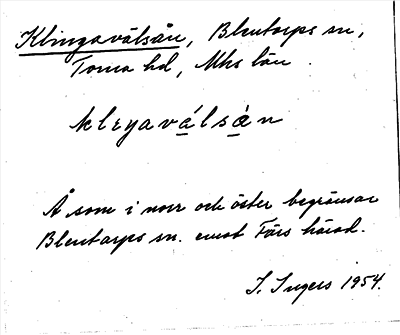 Klingavälsån, Blentarps sn,
Torna hd, Mhs län.
klɪŋaválsȧn
Å som i norr och öster begränsar
Blentarps sn. emot Färs härad.
I. Ingers 1954.